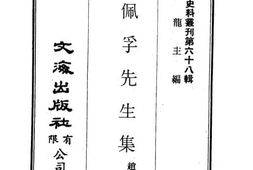 史料叢刊第六十八輯
龍主編
佩孚先生集
趙
文海出版社
有限公司